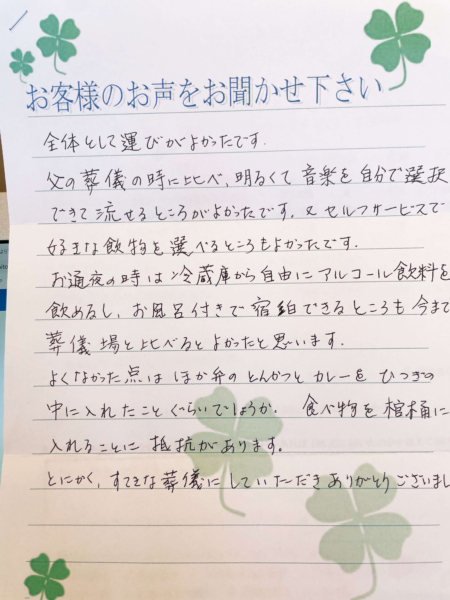 お客様のお声をお聞かせ下さい
全体として運びがよかったです.
父の葬儀の時に比べ、明るくて音楽を自分で選択
できて流せるところがよかったです. 又セルフサービスで
好きな飲物を選べるところもよかったです.
お通夜の時は冷蔵庫から自由にアルコール飲料を
飲めるし、お風呂付きで宿泊できるところも今まで
葬儀場と比べるとよかったと思います.
よくなかった点はほか弁のとんかつとカレーをひつぎの
中に入れたことぐらいでしょうか. 食べ物を棺桶に
入れることに抵抗があります.
とにかく、すてきな葬儀にしていただきありがとうございまし